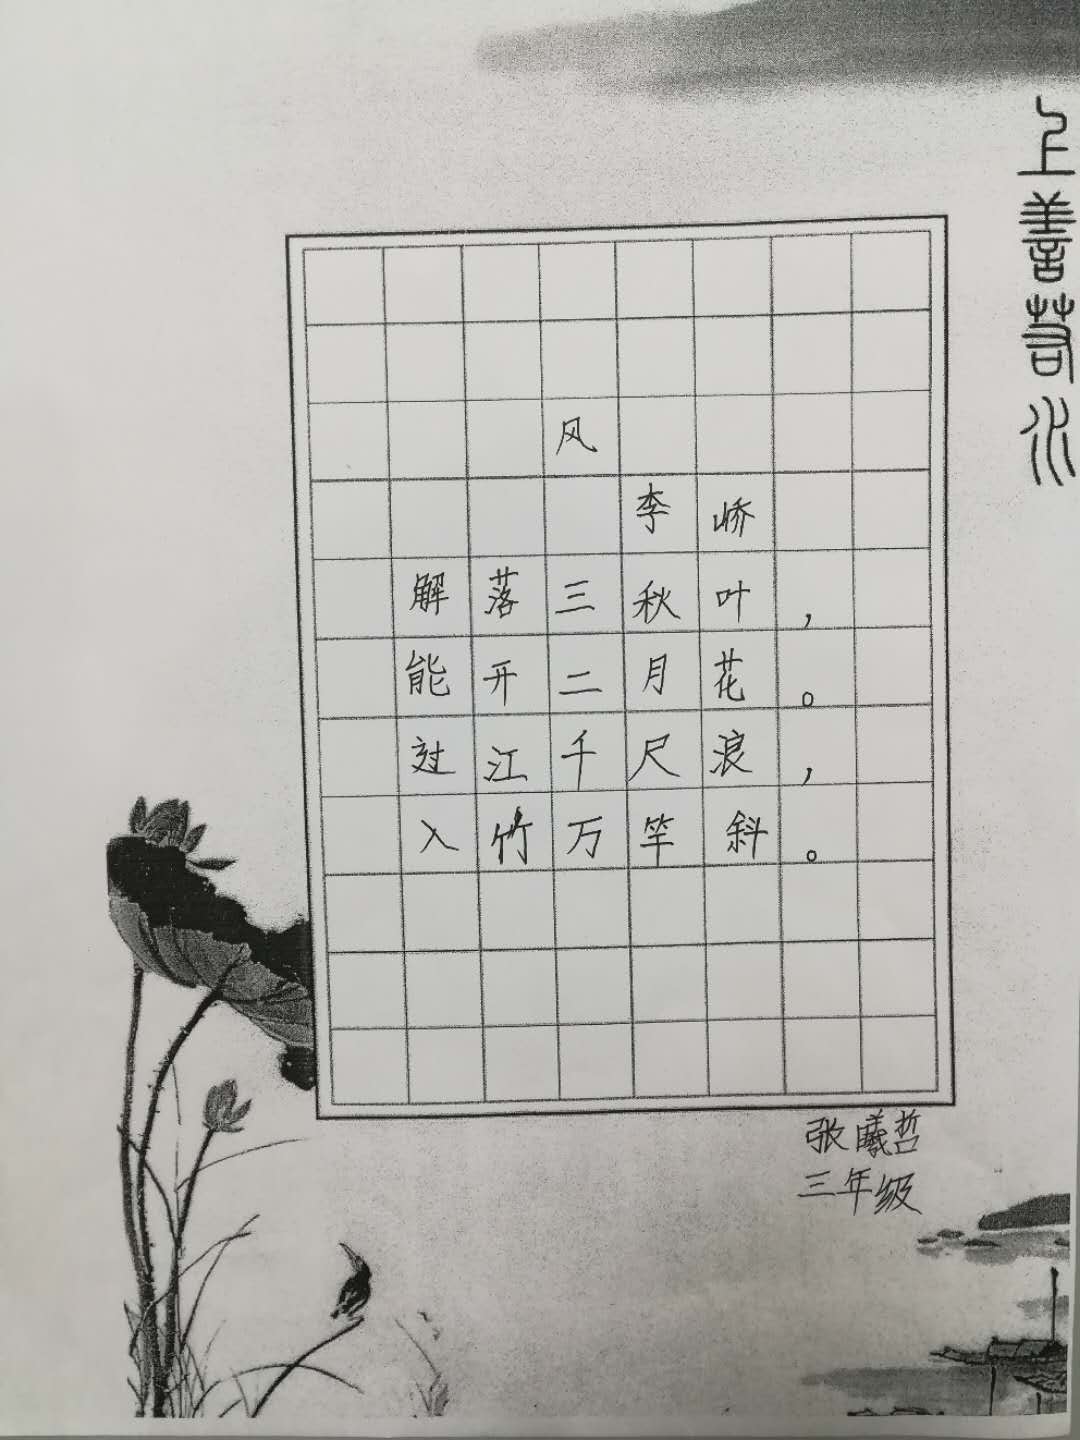 上善若水
风
李峤
解落三秋叶，
能开二月花。
过江千尺浪，
入竹万竿斜。
张曦哲
三年级